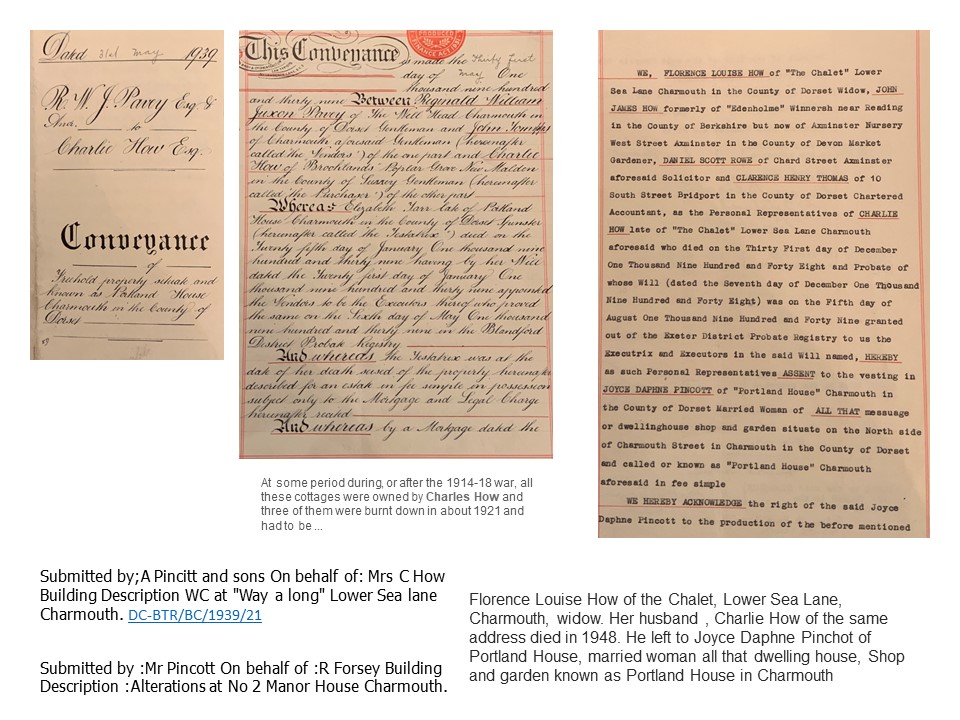 Dated 31st May 1939
R. W. J. Pavey Esq &
Anr. to
Charlie How Esq.
Conveyance
of
Freehold property situate and
known as Portland House
Charmouth in the County of
Dorset
PRODUCED
FINANCE ACT, 1931
This Conveyance is made the Thirty first
day of May One
thousand nine hundred
and thirty nine Between Reginald William
Juxon Pavey of The Well Head Charmouth in
the County of Dorset Gentleman and John
of Charmouth aforesaid Gentleman (hereinafter
called the Vendors") of the one part and Charlie
How of Brooklands Poplar Grove New Malden
in the County of Surrey Gentleman (hereinafter
called the Purchaser") of the other part
Whereas Elizabeth Tarr late of Portland
House Charmouth in the County of Dorset Spinster
(hereinafter called the Testatrix") died on the
Twenty fifth day of January One thousand nine
hundred and thirty nine having by her Will
dated the Twenty first day of January One
thousand nine hundred and thirty nine appointed
the Vendors to be the Executors thereof who proved
the same on the Sixth day of May One thousand
nine hundred and thirty nine in the Blandford
District Probate Registry
And whereas the Testatrix was at the
date of her death seised of the property hereinafter
described for an estate in fee simple in possession
subject only to the Mortgage and Legal Charge
hereinafter recited
And whereas by a Mortgage dated the
WE, FLORENCE LOUISE HOW of "The Chalet" Lower
Sea Lane Charmouth in the County of Dorset Widow, JOHN
JAMES HOW formerly of "Edenholme" Winnersh near Reading
in the County of Berkshire but now of Axminster Nursery
West Street Axminster in the County of Devon Market
Gardener, DANIEL SCOTT ROWE of Chard Street Axminster
aforesaid Solicitor and CLARENCE HENRY THOMAS of 10
South Street Bridport in the County of Dorset Chartered
Accountant, as the Personal Representatives of CHARLIE
HOW late of "The Chalet" Lower Sea Lane Charmouth
aforesaid who died on the Thirty First day of December
One Thousand Nine Hundred and Forty Eight and Probate of
whose Will (dated the Seventh day of December One Thousand
Nine Hundred and Forty Eight) was on the Fifth day of
August One Thousand Nine Hundred and Forty Nine granted
out of the Exeter District Probate Registry to us the
Executrix and Executors in the said Will named, HEREBY
as such Personal Representatives ASSENT to the vesting in
JOYCE DAPHNE PINCOTT of "Portland House" Charmouth in
the County of Dorset Married Woman of ALL THAT messuage
or dwellinghouse shop and garden situate on the North side
of Charmouth Street in Charmouth in the County of Dorset
and called or known as "Portland House" Charmouth
aforesaid in fee simple
WE HEREBY ACKNOWLEDGE the right of the said Joyce
Daphne Pincott to the production of the before mentioned
At some period during, or after the 1914-18 war, all
these cottages were owned by Charles How and
three of them were burnt down in about 1921 and
had to be ...
Submitted by;A Pincitt and sons On behalf of: Mrs C How
Building Description WC at "Way a long" Lower Sea lane
Charmouth. DC-BTR/BC/1939/21
Submitted by :Mr Pincott On behalf of :R Forsey Building
Description :Alterations at No 2 Manor House Charmouth.
Florence Louise How of the Chalet, Lower Sea Lane,
Charmouth, widow. Her husband , Charlie How of the same
address died in 1948. He left to Joyce Daphne Pinchot of
Portland House, married woman all that dwelling house, Shop
and garden known as Portland House in Charmouth